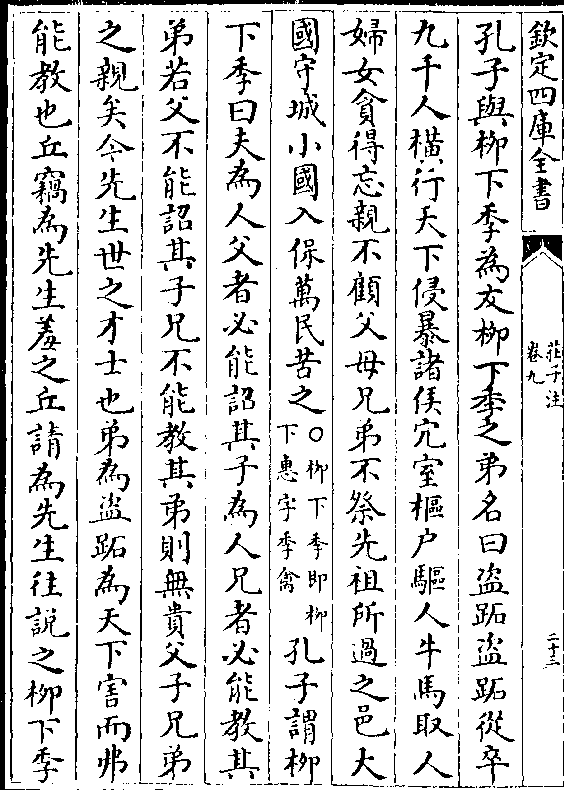 欽定四庫全書
莊子注
卷九
二十三
孔子與柳下季為友柳下季之弟名曰盜跖盜跖從卒
九千人橫行天下侵暴諸侯穴室樞户驅人牛馬取人
婦女貪得忘親不顧父母兄弟不祭先祖所過之邑大
國守城小國入保萬民苦之
○柳下季即柳
下惠字季禽
孔子謂柳
下季曰夫為人父者必能詔其子為人兄者必能教其
弟若父不能詔其子兄不能教其弟則無貴父子兄弟
之親矣今先生世之才士也弟為盜跖為天下害而弗
能教也丘竊為先生羞之丘請為先生往說之柳下季